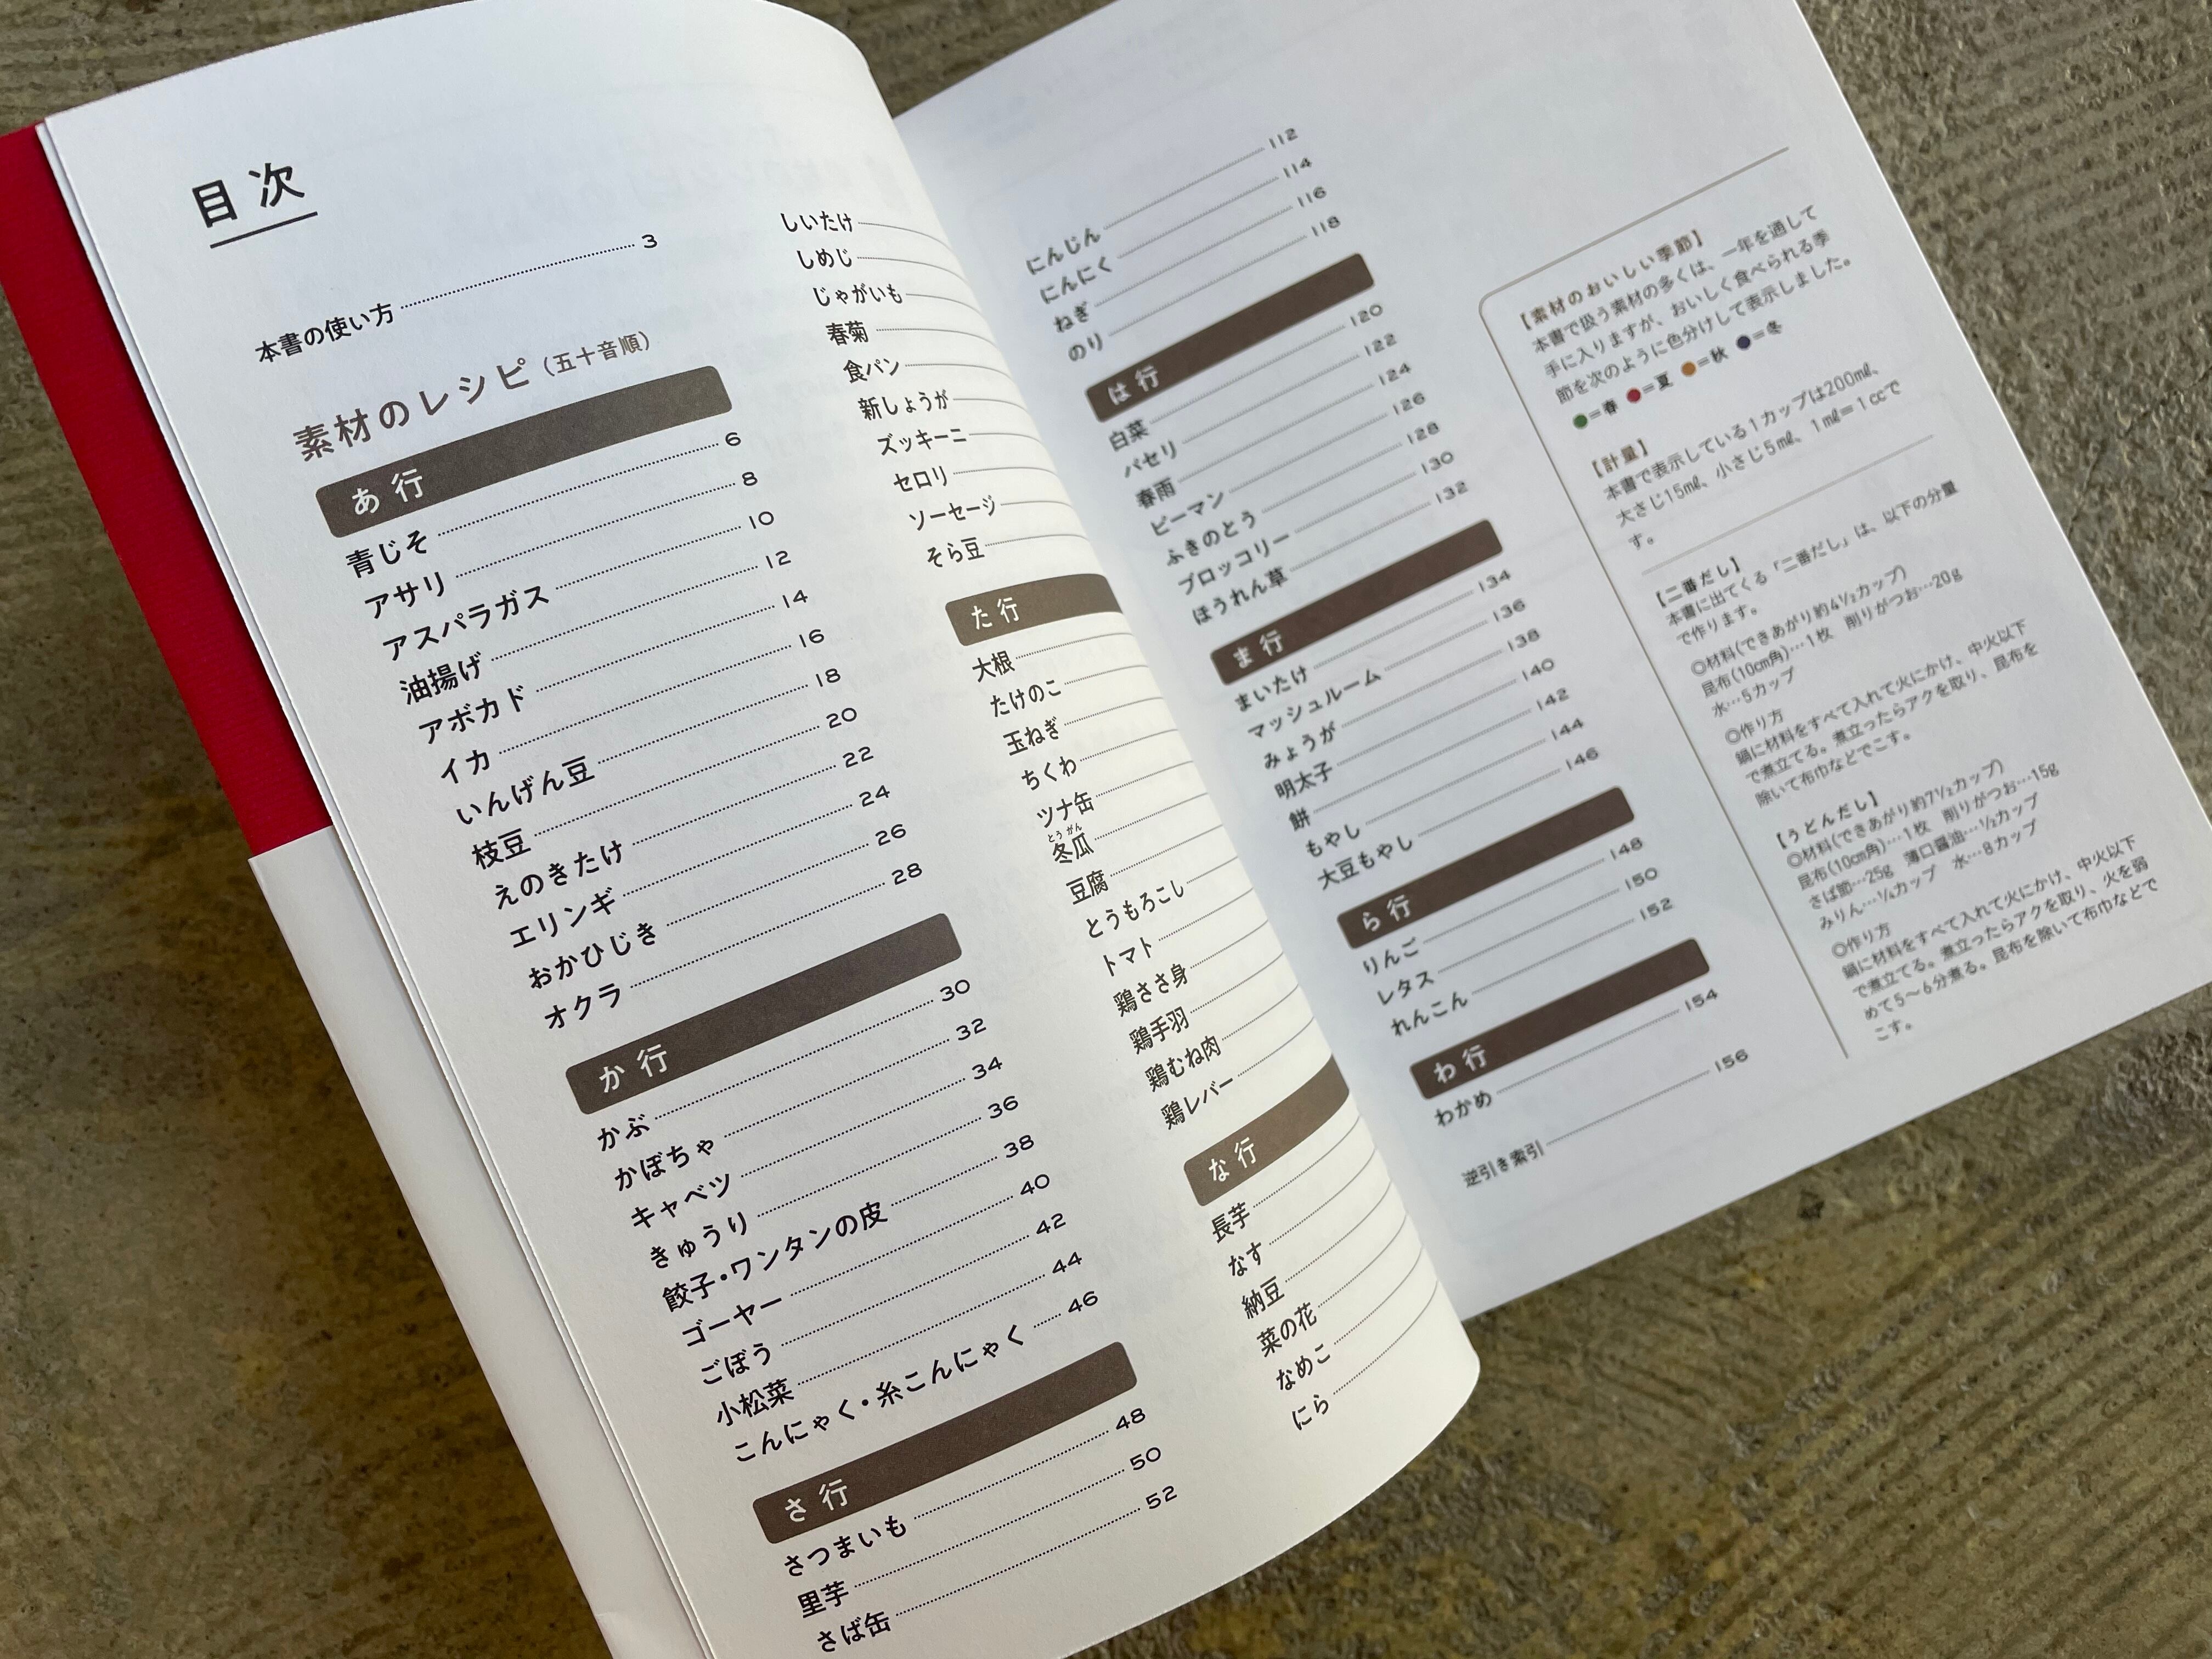 目次
本書の使い方 3
素材のレシピ（五十音順）
あ行
青じそ 6
アサリ 8
アスパラガス 10
油揚げ 12
アボカド 14
イカ 16
いんげん豆 18
枝豆 20
えのきたけ 22
エリンギ 24
おかひじき 26
オクラ 28
か行
かぶ 30
かぼちゃ 32
キャベツ 34
きゅうり 36
餃子・ワンタンの皮 38
ゴーヤー 40
ごぼう 42
小松菜 44
こんにゃく・糸こんにゃく 46
さ行
さつまいも 48
里芋 50
さば缶 52
しいたけ
しめじ
じゃがいも
春菊
食パン
新しょうが
ズッキーニ
セロリ
ソーセージ
そら豆
た行
大根
たけのこ
玉ねぎ
ちくわ
ツナ缶
とうがん
冬瓜
豆腐
とうもろこし
トマト
鶏ささ身
鶏手羽
鶏むね肉
鶏レバー
な行
長芋
なす
納豆
菜の花
なめこ
にら
にんじん 112
にんにく 114
ねぎ 116
のり 118
は行
白菜 120
パセリ 122
春雨 124
ピーマン 126
ふきのとう 128
ブロッコリー 130
ほうれん草 132
ま行
まいたけ 134
マッシュルーム 136
みょうが 138
明太子 140
餅 142
もやし 144
大豆もやし 146
ら行
りんご 148
レタス 150
れんこん 152
わ行
わかめ 154
逆引き索引 156
【素材のおいしい季節】
本書で扱う素材の多くは、一年を通して
手に入りますが、おいしく食べられる季
節を次のように色分けして表示しました。
●＝春 ●＝夏 ●＝秋 ●＝冬
【計量】
本書で表示している1カップは200㎖、
大さじ15㎖、小さじ5㎖、1㎖＝1ccで
す。
【二番だし】
本書に出てくる「二番だし」は、以下の分量
で作ります。
◎材料(できあがり約4½カップ)
昆布(10cm角)…1枚 削りがつお…20g
水…5カップ
◎作り方
鍋に材料をすべて入れて火にかけ、中火以下
で煮立てる。煮立ったらアクを取り、昆布を
除いて布巾などでこす。
【うどんだし】
◎材料(できあがり約7½カップ)
昆布(10cm角)…1枚 削りがつお…15g
さば節…25g 薄口醤油…½カップ
みりん…¼カップ 水…8カップ
◎作り方
鍋に材料をすべて入れて火にかけ、中火以下
で煮立てる。煮立ったらアクを取り、火を弱
めて5〜6分煮る。昆布を除いて布巾などで
こす。